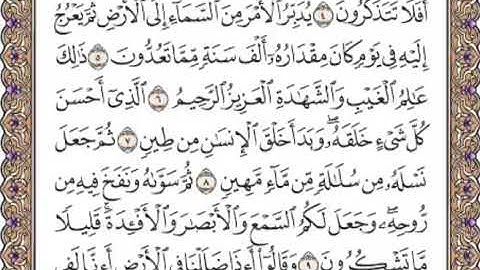 أَفَلَا تَتَذَكَّرُونَ ٤ يُدَبِّرُ ٱلْأَمْرَ مِنَ ٱلسَّمَآءِ إِلَى ٱلْأَرْضِ ثُمَّ يَعْرُجُ
إِلَيْهِ فِى يَوْمٍ كَانَ مِقْدَارُهُۥٓ أَلْفَ سَنَةٍ مِّمَّا تَعُدُّونَ ٥ ذَٰلِكَ
عَٰلِمُ ٱلْغَيْبِ وَٱلشَّهَٰدَةِ ٱلْعَزِيزُ ٱلرَّحِيمُ ٦ ٱلَّذِىٓ أَحْسَنَ
كُلَّ شَىْءٍ خَلَقَهُۥ ۖ وَبَدَأَ خَلْقَ ٱلْإِنسَٰنِ مِن طِينٍ ٧ ثُمَّ جَعَلَ
نَسْلَهُۥ مِن سُلَٰلَةٍ مِّن مَّآءٍ مَّهِينٍ ٨ ثُمَّ سَوَّىٰهُ وَنَفَخَ فِيهِ مِن
رُّوحِهِۦ ۖ وَجَعَلَ لَكُمُ ٱلسَّمْعَ وَٱلْأَبْصَٰرَ وَٱلْأَفْـِٔدَةَ ۚ قَلِيلًا
مَّا تَشْكُرُونَ ٩ وَقَالُوٓا۟ أَءِذَا ضَلَلْنَا فِى ٱلْأَرْضِ أَءِنَّا لَفِى